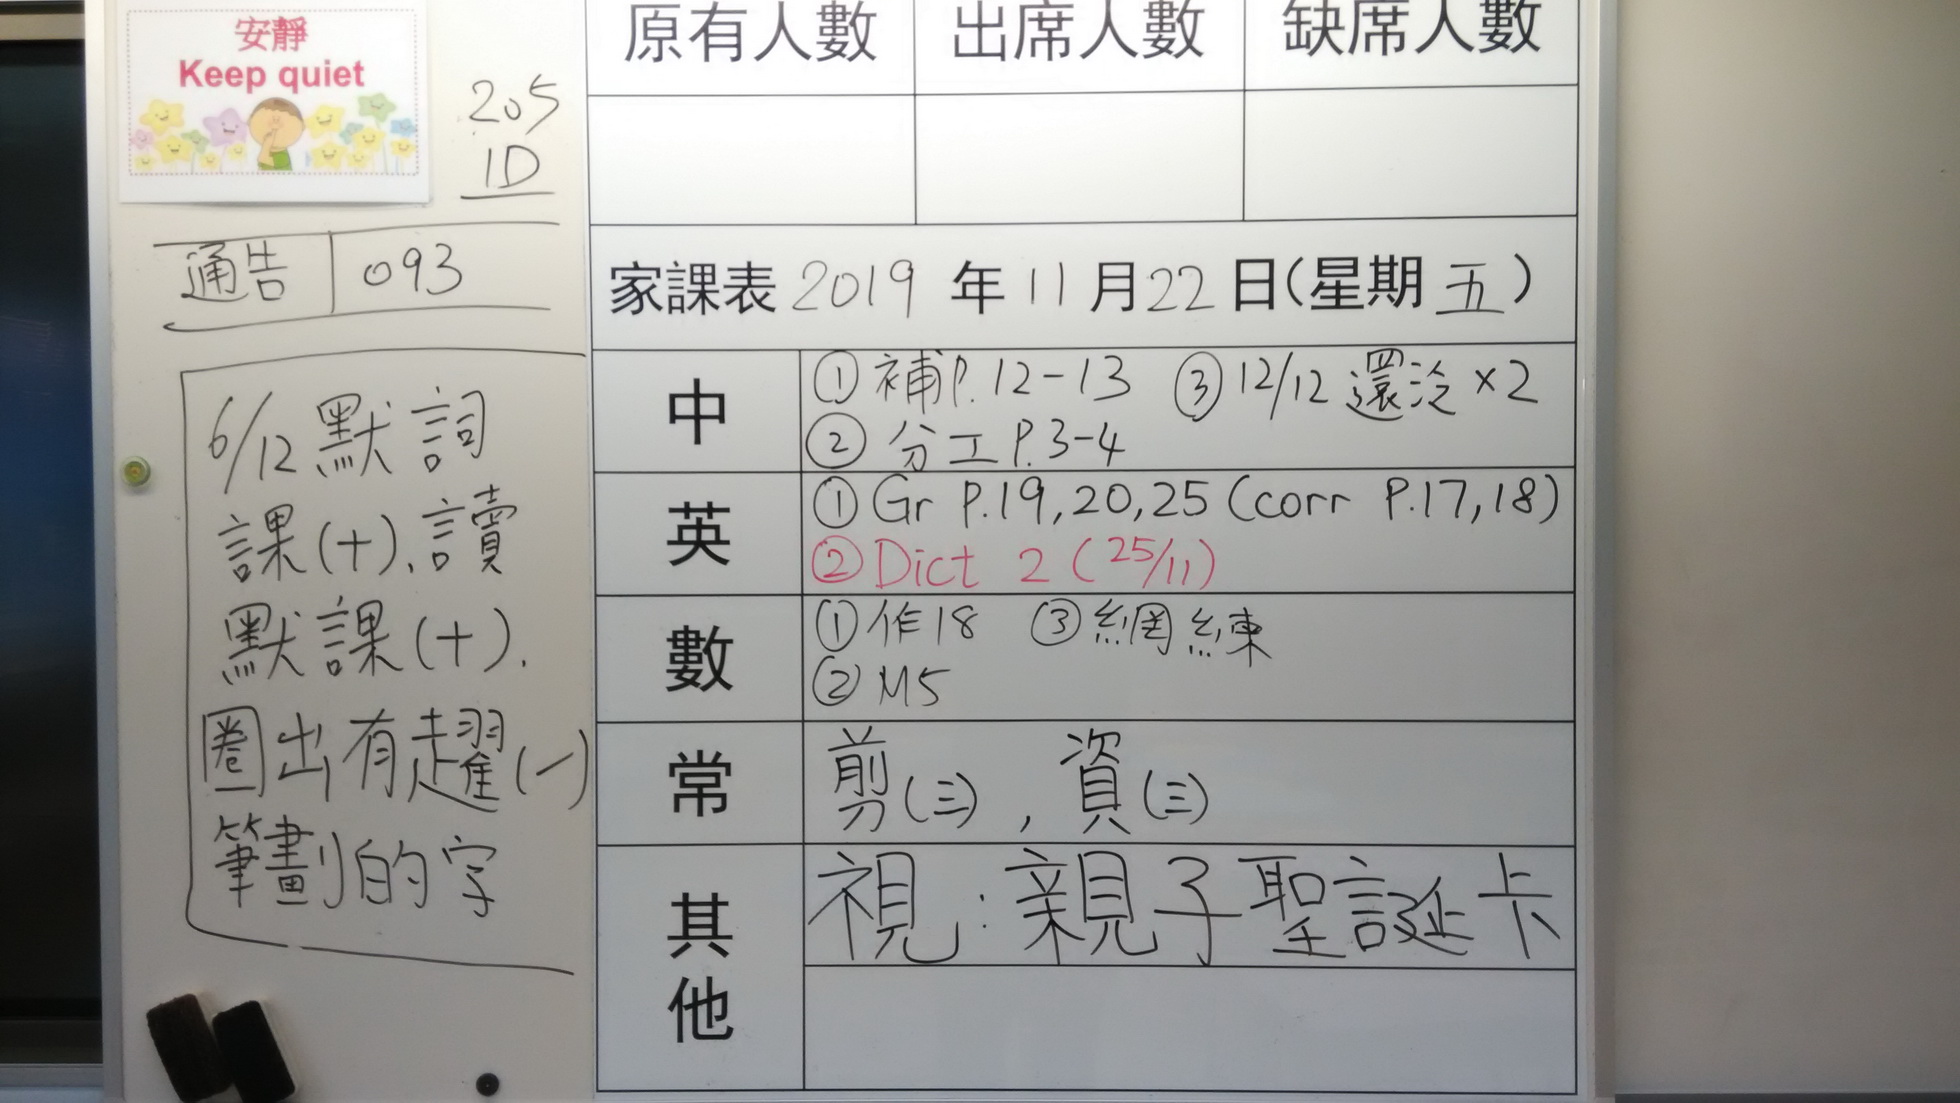 安靜
Keep quiet
205
1D
通告 093
6/12 默詞
課(十).讀
默課(十).
圈出有趯(㇀)
筆劃的字
原有人數 出席人數 缺席人數
家課表 2019 年 11 月 22 日(星期 五)
中 ① 補P.12-13 ③ 12/12 還泛×2
② 分工P.3-4
英 ① Gr P.19,20,25 (corr P.17,18)
② Dict 2 (25/11)
數 ① 作18 ③ 網練
② M5
常 剪(三), 資(三)
其他 視:親子聖誕卡